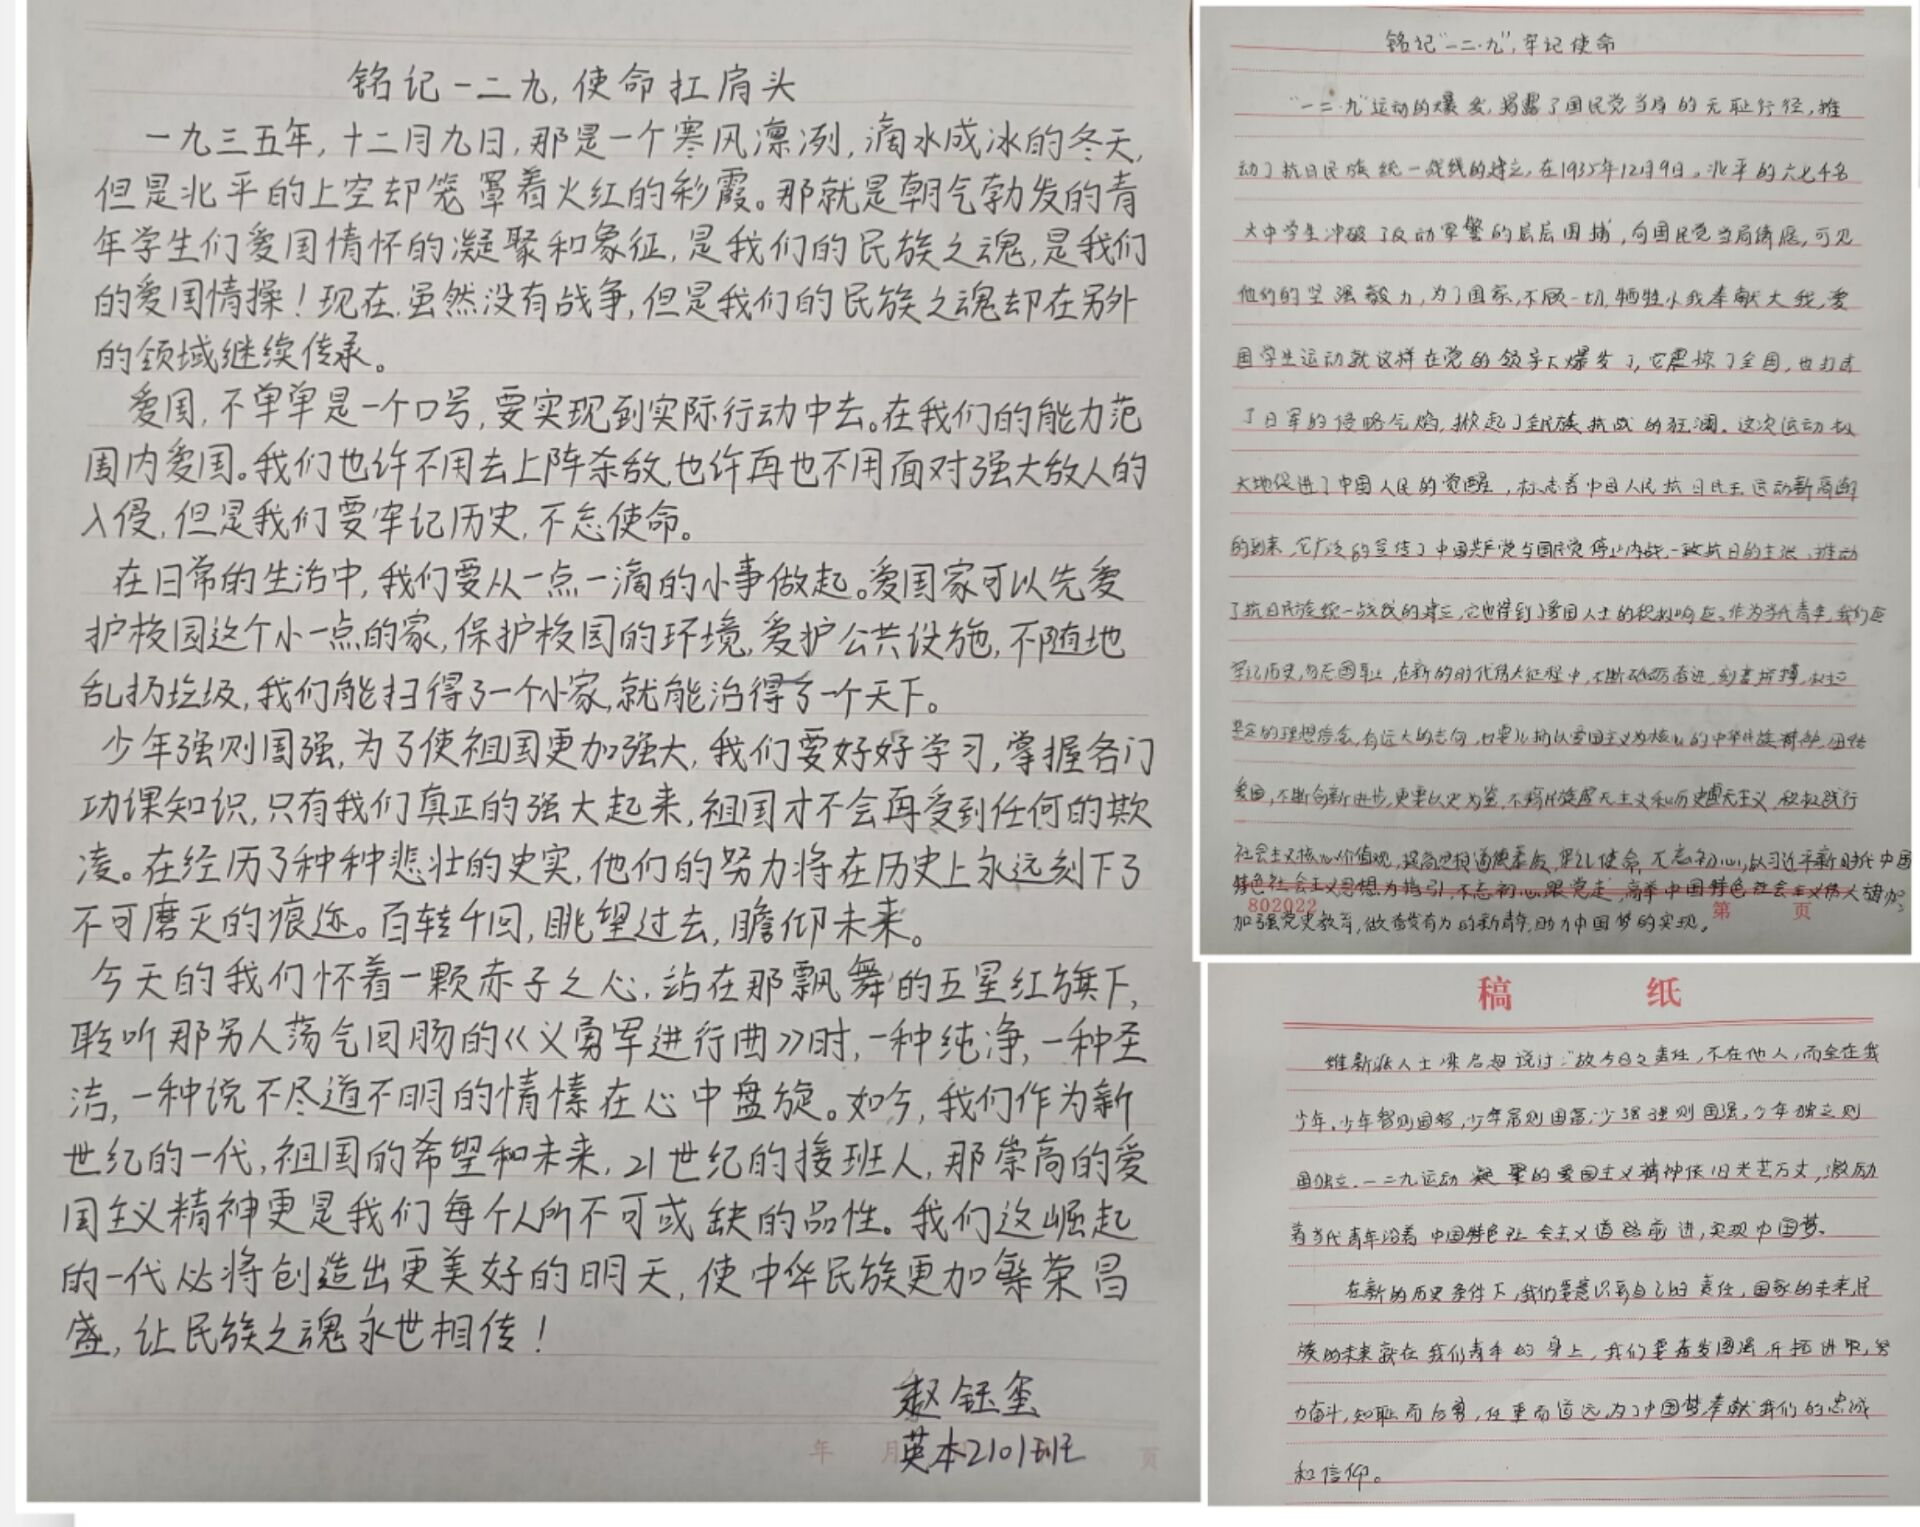 铭记一二九,使命扛肩头
一九三五年,十二月九日,那是一个寒风凛冽,滴水成冰的冬天,
但是北平的上空却笼罩着火红的彩霞。那就是朝气勃发的青
年学生们爱国情怀的凝聚和象征,是我们的民族之魂,是我们
的爱国情操!现在,虽然没有战争,但是我们的民族之魂却在另外
的领域继续传承。
爱国,不单单是一个口号,要实现到实际行动中去。在我们的能力范
围内爱国。我们也许不用去上阵杀敌,也许再也不用面对强大敌人的
入侵,但是我们要牢记历史,不忘使命。
在日常的生活中,我们要从一点一滴的小事做起。爱国家可以先爱
护校园这个小一点的家,保护校园的环境,爱护公共设施,不随地
乱扔垃圾,我们能扫得了一个小家,就能治得了一个天下。
少年强则国强,为了使祖国更加强大,我们要好好学习,掌握各门
功课知识,只有我们真正的强大起来,祖国才不会再受到任何的欺
凌。在经历了种种悲壮的史实,他们的努力将在历史上永远刻下了
不可磨灭的痕迹。百转千回,眺望过去,瞻仰未来。
今天的我们怀着一颗赤子之心,站在那飘舞的五星红旗下,
聆听那另人荡气回肠的《义勇军进行曲》时,一种纯净,一种圣
洁,一种说不尽道不明的情愫在心中盘旋。如今,我们作为新
世纪的一代,祖国的希望和未来,21世纪的接班人,那崇高的爱
国主义精神更是我们每个人所不可或缺的品性。我们这崛起
的一代必将创造出更美好的明天,使中华民族更加繁荣昌
盛,让民族之魂永世相传!
赵钰玺
英本2101班
年 月 页
铭记"一二·九",牢记使命
"一二·九"运动的爆发,揭露了国民党当局的无耻行径,推
动了抗日民族统一战线的建立,在1935年12月9日。北平的六七千名
大中学生冲破了反动军警的层层围捕,向国民党当局请愿,可见
他们的坚强毅力,为了国家,不顾一切,牺牲小我奉献大我,爱
国学生运动就这样在党的领导下爆发了,它震惊了全国,也打击
了日军的侵略气焰,掀起了全民族抗战的狂澜。这次运动极
大地促进了中国人民的觉醒,标志着中国人民抗日民主运动新高潮
的到来,它广泛的宣传了中国共产党与国民党停止内战,一致抗日的主张,推动
了抗日民族统一战线的建立,它也得到了爱国人士的积极响应。作为当代青年,我们应
牢记历史,勿忘国耻,在新的时代伟大征程中,不断砥砺奋进,刻苦拼搏,树立
坚定的理想信念,有远大的志向,以爱国主义为核心的中华民族精神,团结
爱国,不断创新进步,更要以史为鉴,不搞民族虚无主义和历史虚无主义,积极践行
社会主义核心价值观,提高思想道德素质,牢记使命,无忘初心,以习近平新时代中国
特色社会主义思想为指引,不忘初心跟党走,高举中国特色社会主义伟大旗帜,
802022 第 页
加强党史教育,做奋发有为的新青年,助力中国梦的实现。
稿 纸
维新派人士梁启超说过:"故今日之责任,不在他人,而全在我
少年,少年智则国智,少年富则国富,少年强则国强,少年独立则
国独立,一二九运动凝聚的爱国主义精神依旧光芒万丈,激励
着当代青年沿着中国特色社会主义道路前进,实现中国梦。
在新的历史条件下,我们要意识到自己的责任,国家的未来,民
族的未来就在我们青年的身上,我们要奋发图强,开拓进取,努
力奋斗,知耻而后勇,任重而道远,为了中国梦奉献我们的忠诚
和信仰。